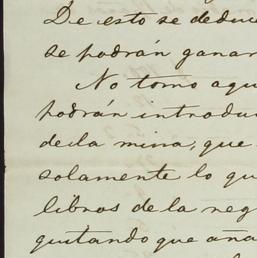 De esto se deduc
se podrán ganar
No tomo aqu
podrán introdu
de la mina, que
solamente lo qu
libros de la neg
quitando que aña